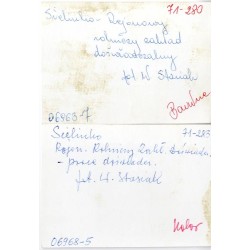 Sielinko - Rejonowy 71-280
rolniczy zakład
doświadczalny
fot W Stasiak
Barwne
06968-7
Sielinko 71-283
Rejon. Rolniczy Zakł. Doświadcz.
- prace
fot. W. Stasiak
Kolor
06968-5